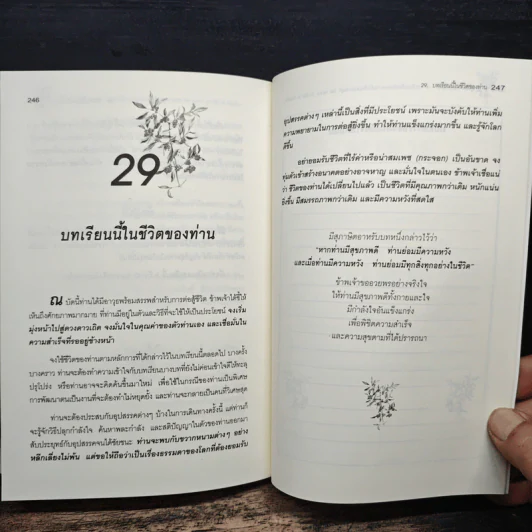 246
29
บทเรียนนี้ในชีวิตของท่าน
ณ บัดนี้ท่านได้มีอาวุธพร้อมสรรพสำหรับการต่อสู้ชีวิต ข้าพเจ้าได้ชี้ให้
เห็นถึงศักยภาพมากมาย ที่ท่านมีอยู่ในตัวและวิธีที่จะใช้ให้เป็นประโยชน์ จงเริ่ม
มุ่งหน้าไปสู่ดวงดาวเถิด จงมั่นใจในคุณค่าของตัวท่านเอง และเชื่อมั่นใน
ความสำเร็จที่รออยู่ข้างหน้า
จงใช้ชีวิตของท่านตามหลักการที่ได้กล่าวไว้ในบทเรียนนี้ตลอดไป บางครั้ง
บางคราว ท่านจะต้องทำความเข้าใจกับบทเรียนบางบทที่ยังไม่ค่อนเข้าใจดีให้ทะลุ
ปรุโปร่ง หรือท่านอาจจะคิดค้นขึ้นมาใหม่ เพื่อใช้ในกรณีของท่านเป็นพิเศษ
การพัฒนาตนเป็นงานที่จะต้องทำไม่หยุดยั้ง และท่านจะกลายเป็นคนที่วิเศษสุด
ท่านจะต้องประสบกับอุปสรรคต่างๆ บ้างในการเดินทางครั้งนี้ แต่ท่านก็
จะรู้จักวิธีปลุกกำลังใจ ค้นหาพละกำลัง และสติปัญญาในตัวของท่านออกมา
สัประยุทธ์กับอุปสรรคจนได้ชัยชนะ ท่านจะพบกับขวากหนามต่างๆ อย่าง
หลีกเลี่ยงไม่พ้น แต่ขอให้ถือว่าเป็นเรื่องธรรมดาของโลกที่ต้องยอมรับ
29. บทเรียนนี้ในชีวิตของท่าน 247
อุปสรรคต่างๆ เหล่านี้เป็นสิ่งที่มีประโยชน์ เพราะมันจะบังคับให้ท่านเพิ่ม
ความพยายามในการต่อสู้ยิ่งขึ้น ทำให้ท่านแข็งแกร่งมากขึ้น และรู้จักโลก
ดีขึ้น
อย่ายอมรับชีวิตที่ไร้ค่าหรือน่าสมเพช (กระจอก) เป็นอันขาด จง
ทุ่มตัวเข้าสร้างอนาคตอย่างอาจหาญ และมั่นใจในตนเอง ข้าพเจ้าเชื่อแน่
ว่า ชีวิตของท่านได้เปลี่ยนไปแล้ว เป็นชีวิตที่มีคุณภาพกว่าเดิม หนักแน่น
ยิ่งขึ้น มีสมรรถภาพกว่าเดิม และมีความหวังที่สดใส
มีสุภาษิตอาหรับบทหนึ่งกล่าวไว้ว่า
"หากท่านมีสุขภาพดี ท่านย่อมมีความหวัง
และเมื่อท่านมีความหวัง ท่านย่อมมีทุกสิ่งทุกอย่างในชีวิต"
ข้าพเจ้าขออวยพรอย่างจริงใจ
ให้ท่านมีสุขภาพดีทั้งกายและใจ
มีกำลังใจอันแข็งแกร่ง
เพื่อพิชิตความสำเร็จ
และความสุขตามที่ได้ปรารถนา